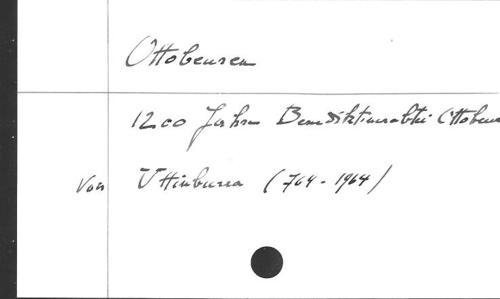 Ottobeuren
1200 Jahre Benediktinerabtei Ottobeu
Von Uttinbura (764-1964)